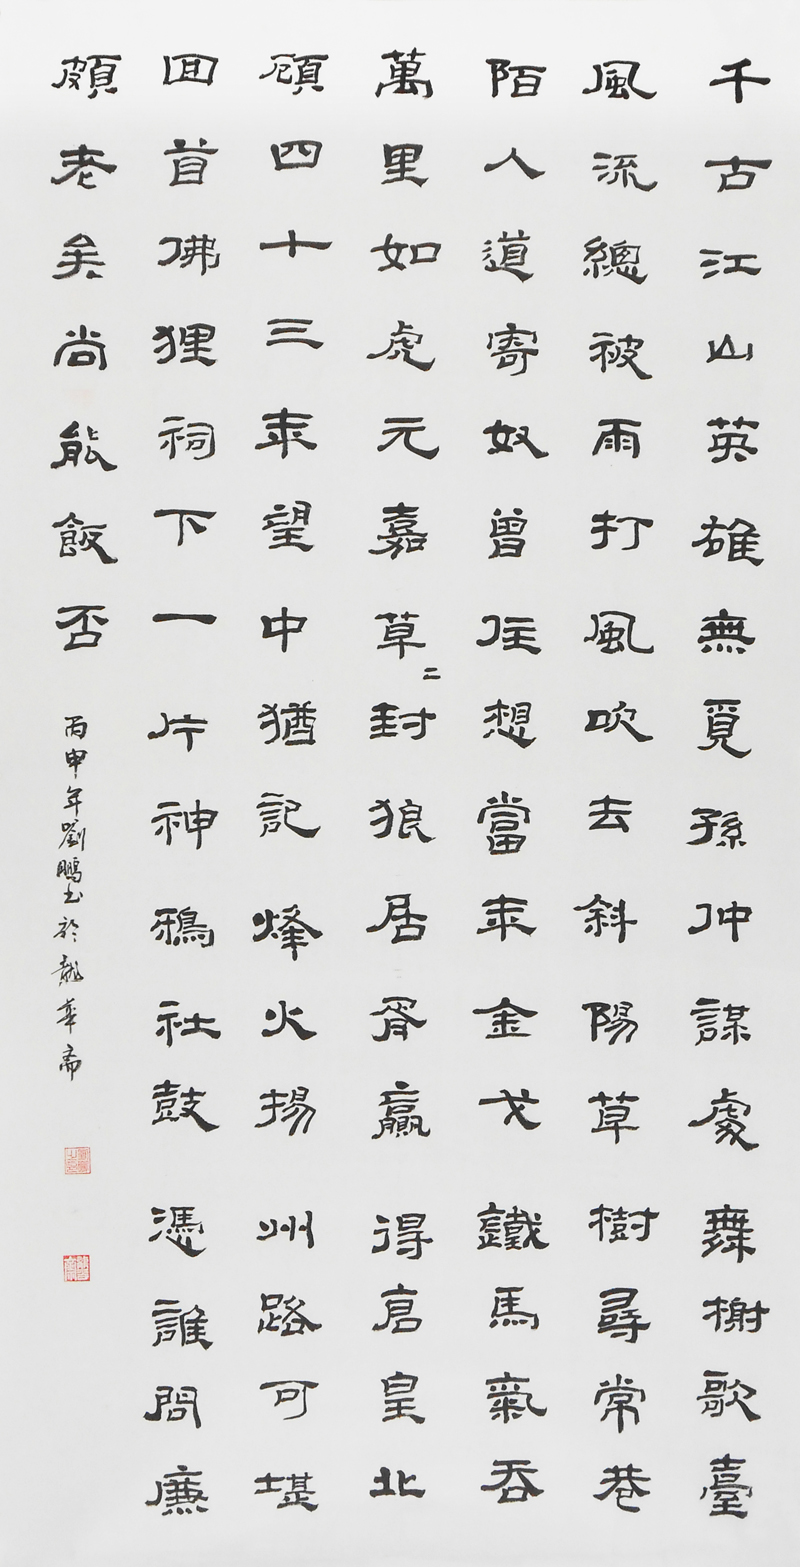 千古江山英雄無覓孫仲謀處舞榭歌臺
風流總被雨打風吹去斜陽草樹尋常巷
陌人道寄奴曾住想當年金戈鐵馬氣吞
萬里如虎元嘉草二封狼居胥贏得倉皇北
顧四十三年望中猶記烽火揚州路可堪
回首佛狸祠下一片神鴉社鼓憑誰問廉
頗老矣尚能飯否
丙申年劉鵬书於龍華齋